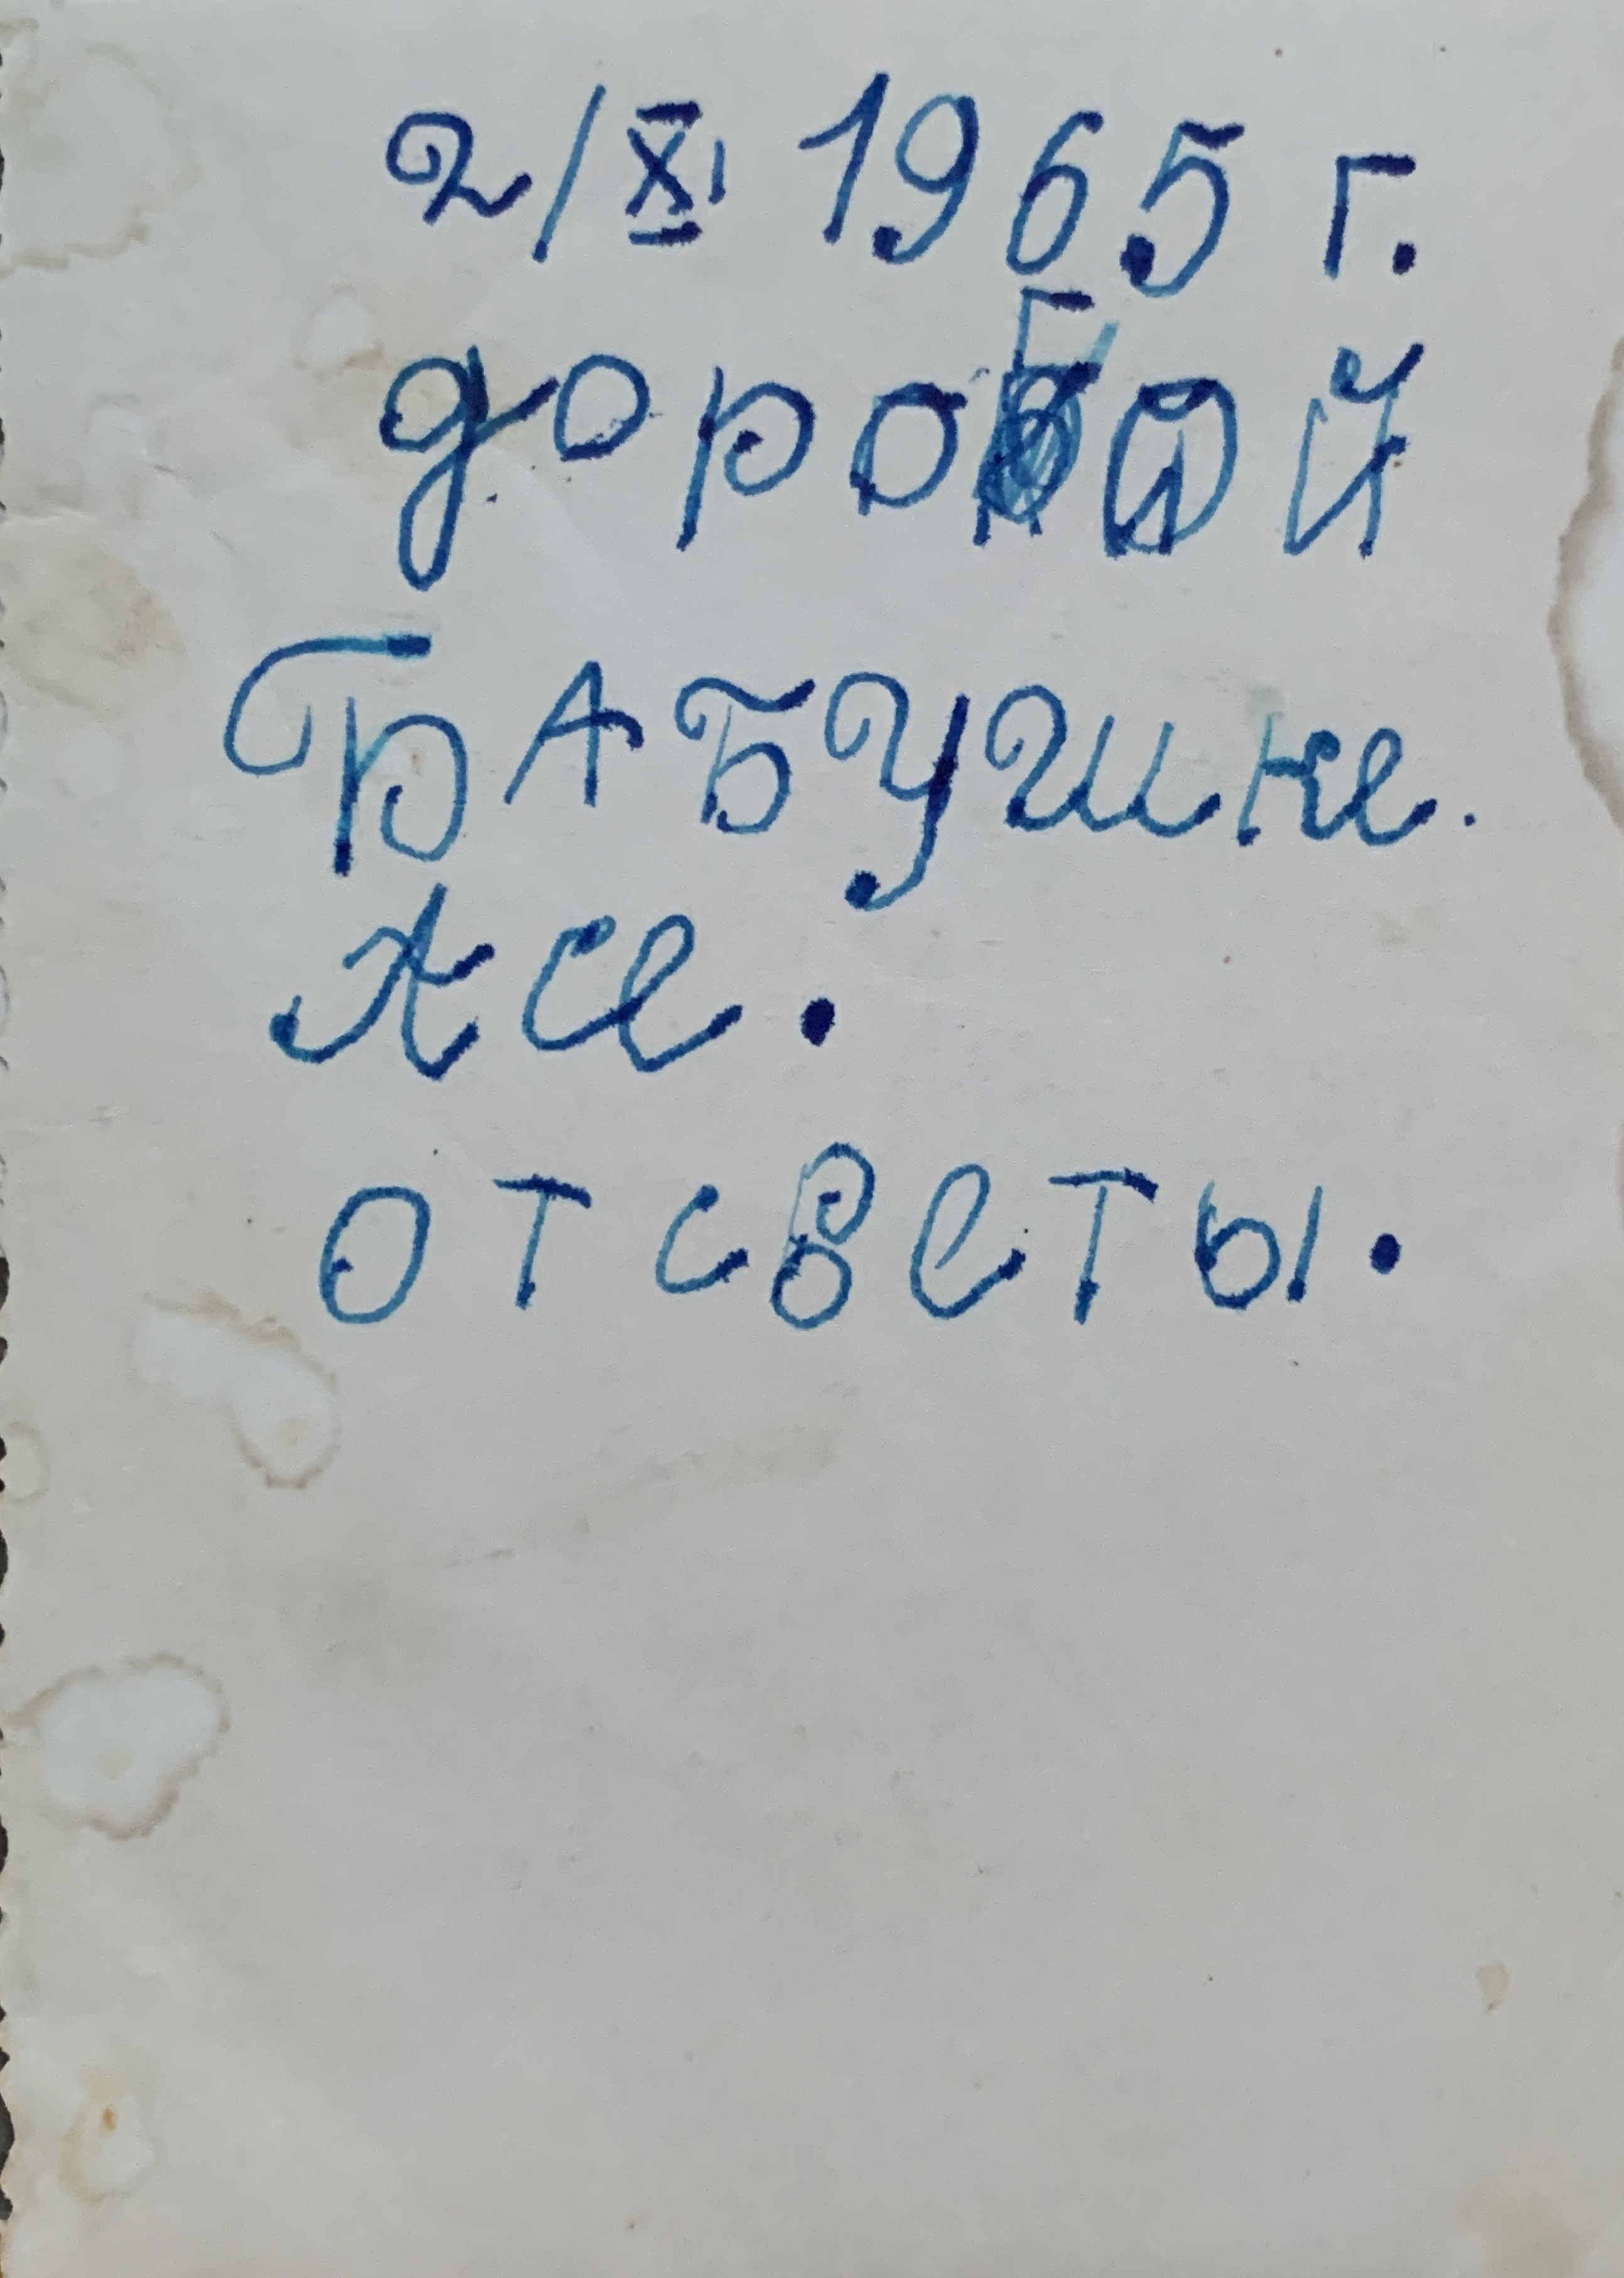 2/XI 1965 г.
дорогой
БАБУшке.
Асе.
от светы.